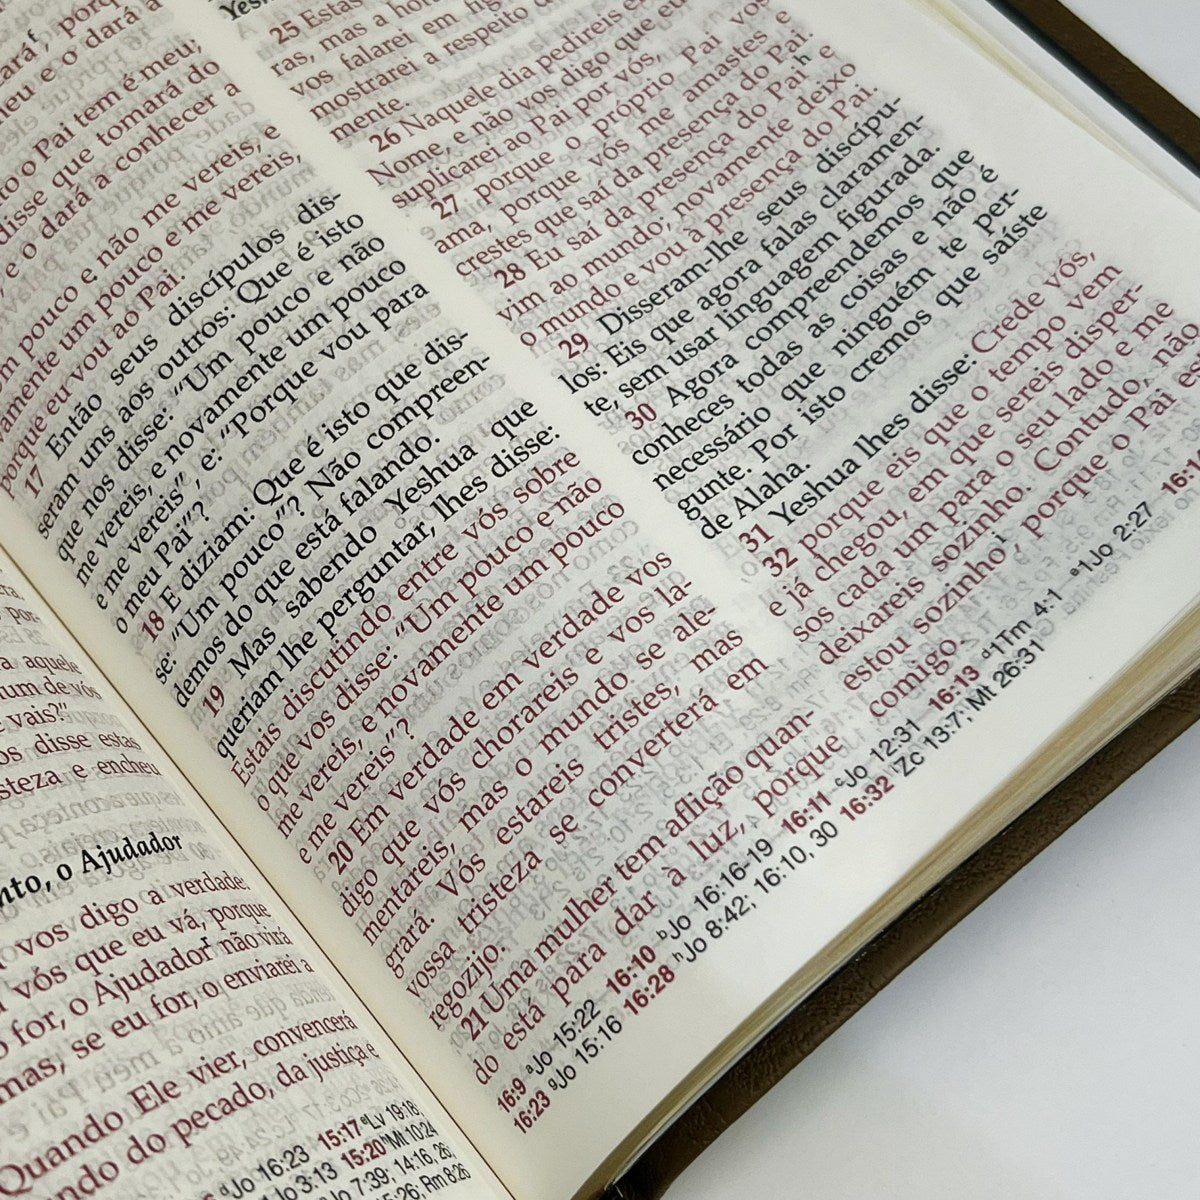 nto, o Ajudador
vos digo a verdade:
a vós que eu vá, porque
for, o Ajudador não virá
mas, se eu for, o enviarei a
Quando Ele vier, convencerá
do pecado, da justiça e
Jo 16:23 15:17 Lv 19:18
Jo 3:13 15:20 Mt 10:24
Jo 7:39; 14:16, 26;
15:26; Rm 8:26
eu e o dará a
o Pai tem é meu;
disse que tomará do
e o dará a conhecer a
pouco e não me vereis, e
amente um pouco e me vereis,
porque eu vou ao Pai.
17 Então seus discípulos dis-
seram uns aos outros: Que é isto
que nos disse: “Um pouco e não
me vereis, e novamente um pouco
e me vereis”, e: “Porque vou para
o meu Pai”?
18 E diziam: Que é isto que dis-
se: “Um pouco”? Não compreen-
demos do que está falando.
19 Mas sabendo Yeshua que
queriam lhe perguntar, lhes disse:
Estais discutindo entre vós sobre
o que vos disse: “Um pouco e não
me vereis, e novamente um pouco
e me vereis”?
20 Em verdade em verdade vos
digo que vós chorareis e vos la-
mentareis, mas o mundo se ale-
grará. Vós estareis tristes, mas
vossa tristeza se converterá em
regozijo.
21 Uma mulher tem aflição quan-
do está para dar à luz, porque
25 Estas
ras, mas a hora
vos falarei em fig
mostrarei a respeito d
mente.
26 Naquele dia pedireis e
Nome, e não vos digo que eu
suplicarei ao Pai por vós,
27 porque o próprio Pai vos
ama, porque vós me amastes e
crestes que saí da presença do Pai.
28 Eu saí da presença do Pai h e
vim ao mundo; novamente deixo
o mundo e vou à presença do Pai.
29 Disseram-lhe seus discípu-
los: Eis que agora falas claramen-
te, sem usar linguagem figurada.
30 Agora compreendemos que
conheces todas as coisas e não é
necessário que ninguém te per-
gunte. Por isto cremos que saíste
de Alaha.
31 Yeshua lhes disse: Crede vós,
32 porque eis que o tempo vem
e já chegou, em que sereis disper-
sos cada um para o seu lado e me
deixareis sozinho. Contudo, não
estou sozinho i, porque o Pai es
comigo.
16:9 a Jo 15:22 16:10 b Jo 16:16-19 16:11 c Jo 12:31 16:13 d 1Tm 4:1 e 1Jo 2:27 16:14
16:23 g Jo 15:16 16:28 h Jo 8:42; 16:10, 30 16:32 i Zc 13:7; Mt 26:31